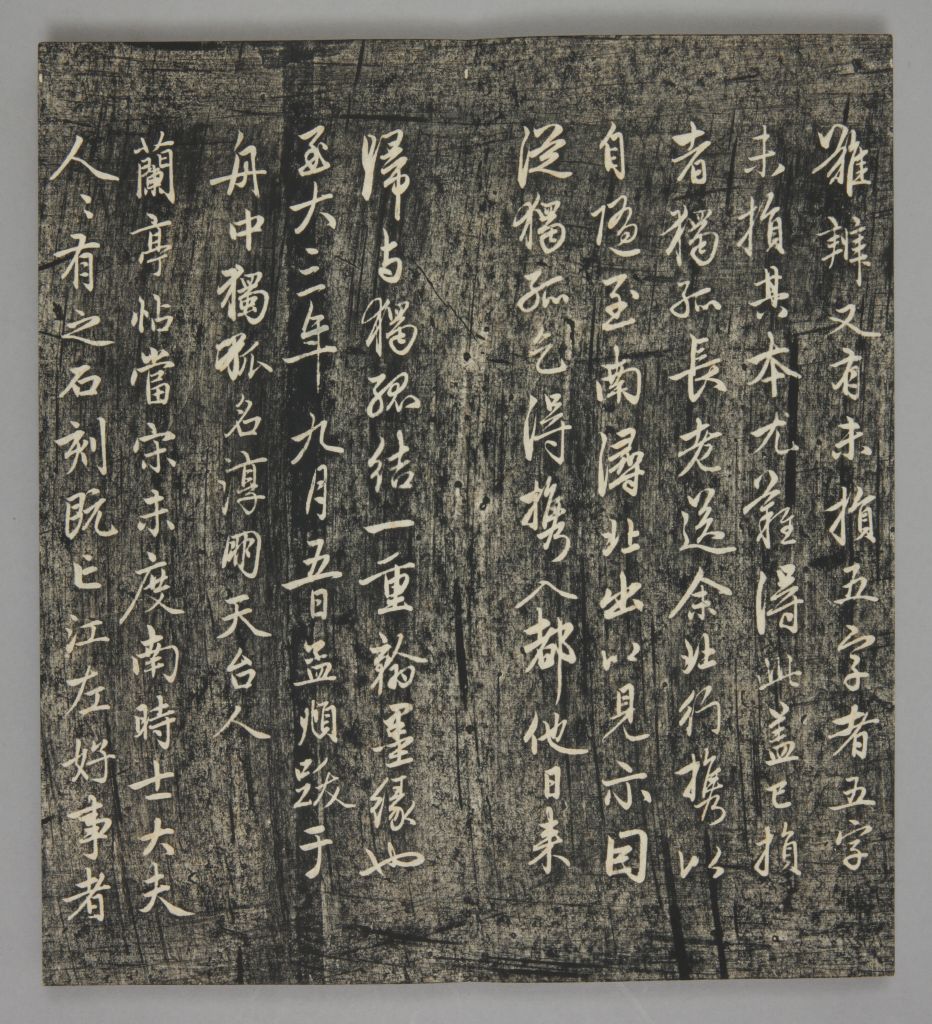 難辨又有未損五字者五字
未損其本尤難得此盖已損
者獨孤長老送余北行攜以
自隨至南潯北出以見示因
従獨孤乞得攜入都他日来
歸与獨孤結一重翰墨縁也
至大三年九月五日孟頫跋于
舟中獨孤名淳朋天台人
蘭亭帖當宋未度南時士大夫
人〻有之石刻既亡江左好事者